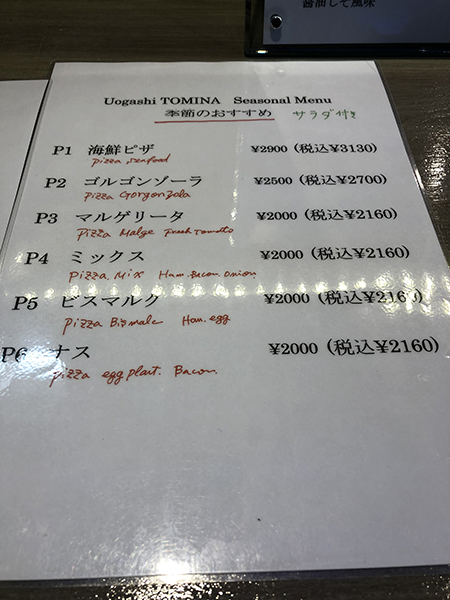 醤油しそ風味
Uogashi TOMINA Seasonal Menu
季節のおすすめ サラダ付き
P1 海鮮ピザ ¥2900 (税込¥3130)
pizza seafood
P2 ゴルゴンゾーラ ¥2500 (税込¥2700)
pizza Gorgonzola
P3 マルゲリータ ¥2000 (税込¥2160)
pizza Malge Fresh tomato
P4 ミックス ¥2000 (税込¥2160)
pizza Mix Ham. Bacon onion
P5 ビスマルク ¥2000 (税込¥2160)
pizza Bismalc Ham. egg
P6 ナス ¥2000 (税込¥2160)
pizza egg plant. Bacon